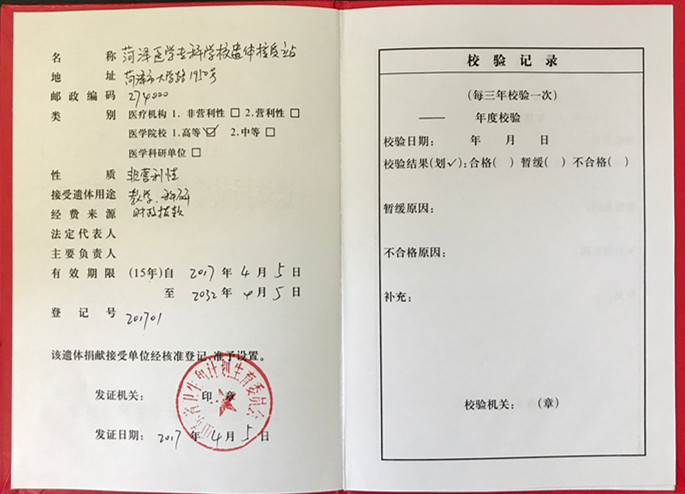 名称 菏泽医学专科学校遗体接受站
地址 菏泽市大学路1950号
邮政编码 274000
类别 医疗机构 1. 非营利性□ 2. 营利性□
医学院校 1. 高等☑ 2. 中等□
医学科研单位□
性质 非营利性
接受遗体用途 教学、科研
经费来源 财政拨款
法定代表人
主要负责人
有效期限 (15年)自 2017年4月5日
至 2032年4月5日
登记号 201701
该遗体捐献接受单位经核准登记,准予设置。
发证机关: 印章
山东省卫生和计划生育委员会
发证日期: 2017年4月5日
校验记录
(每三年校验一次)
—— 年度校验
校验日期: 年 月 日
校验结果(划✓):合格( ) 暂缓( ) 不合格( )
暂缓原因:
不合格原因:
补充:
校验机关: (章)